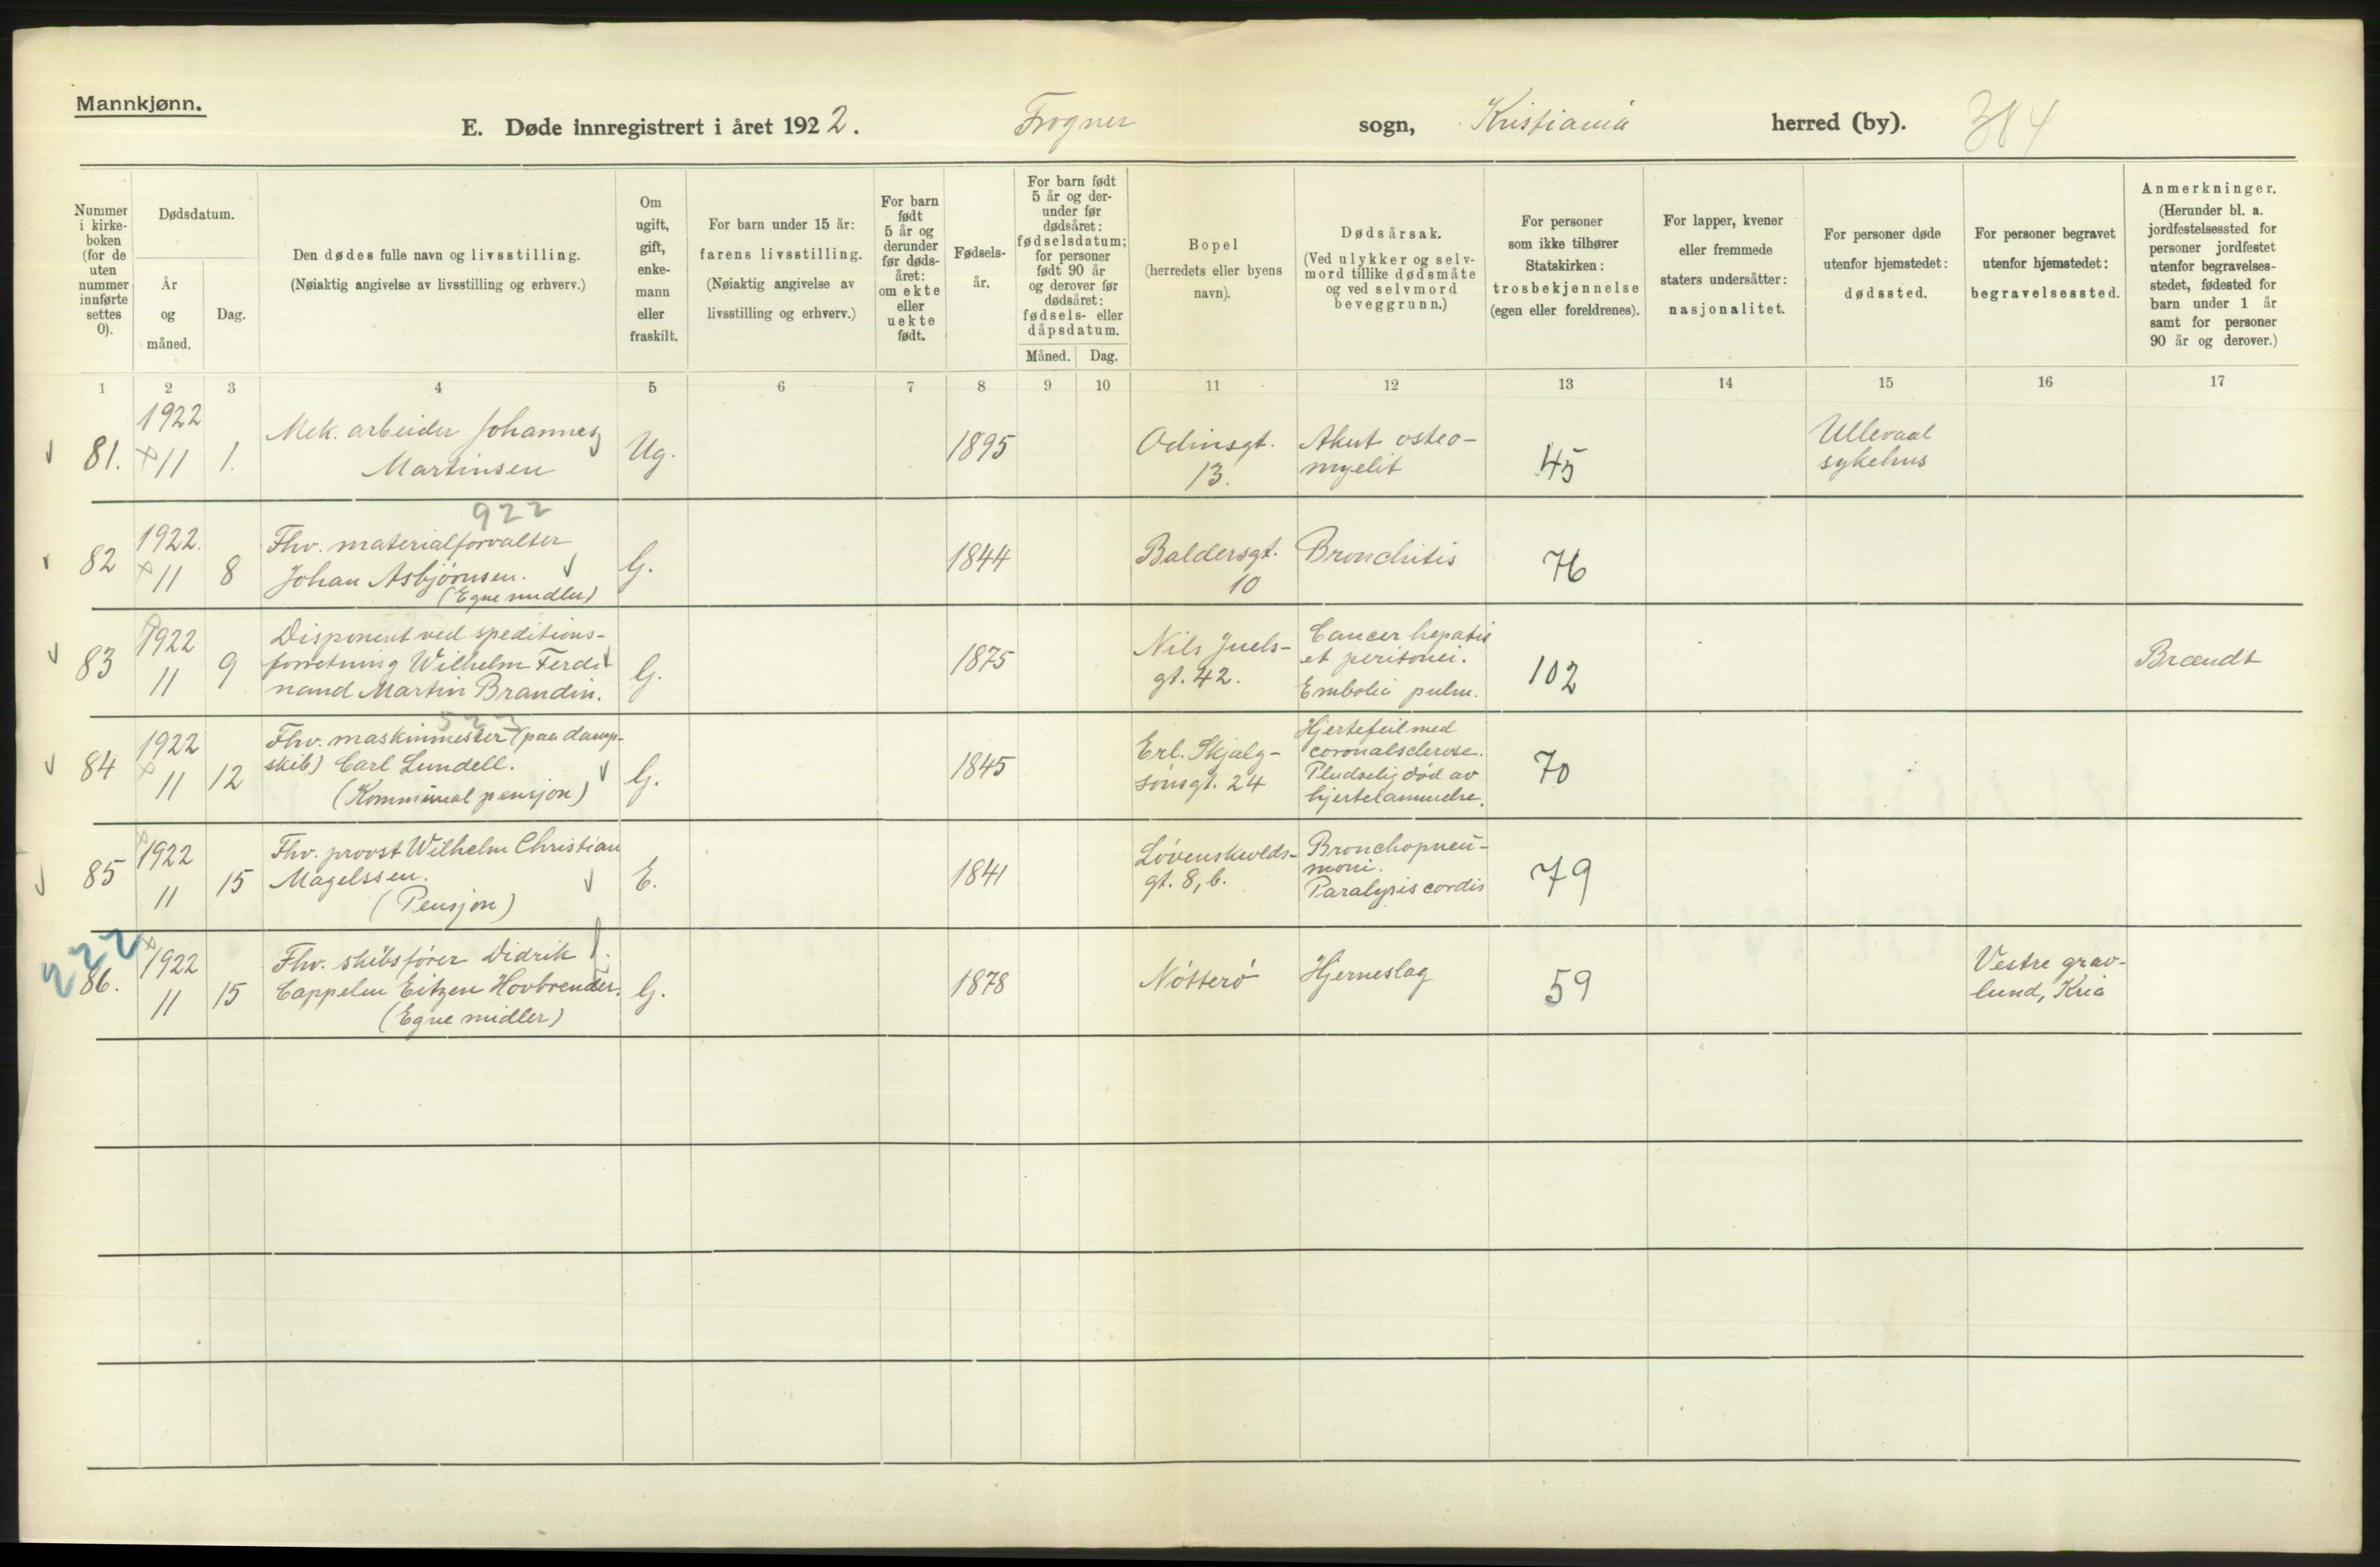 Mannkjønn.
E. Døde innregistrert i året 1922. Frogner sogn, Kristiania herred (by). 384
Nummer i kirke-boken (for de uten nummer innførte settes 0).
Dødsdatum.
År og måned.
Dag.
Den dødes fulle navn og livsstilling.
(Nøiaktig angivelse av livsstilling og erhverv.)
Om ugift, gift, enke-mann eller fraskilt.
For barn under 15 år:
farens livsstilling.
(Nøiaktig angivelse av
livsstilling og erhverv.)
For barn født 5 år og derunder før døds-året: om ekte eller uekte født.
Fødsels-
år.
For barn født 5 år og der-under før dødsåret: fødselsdatum; for personer født 90 år og derover før dødsåret: fødsels- eller dåpsdatum.
Måned. Dag.
Bopel
(herredets eller byens
navn).
Dødsårsak.
(Ved ulykker og selv-
mord tillike dødsmåte
og ved selvmord
beveggrunn.)
For personer
som ikke tilhører
Statskirken:
trosbekjennelse
(egen eller foreldrenes).
For lapper, kvener
eller fremmede
staters undersåtter:
nasjonalitet.
For personer døde
utenfor hjemstedet:
dødssted.
For personer begravet
utenfor hjemstedet:
begravelsessted.
Anmerkninger.
(Herunder bl. a.
jordfestelsessted for
personer jordfestet
utenfor begravelses-
stedet, fødested for
barn under 1 år
samt for personer
90 år og derover.)
1 2 3 4 5 6 7 8 9 10 11 12 13 14 15 16 17
81. 1922 11 1. Mek. arbeider Johannes
Martinsen
Ug. 1895 Odinsgt.
13.
Akut osteo-
myelit
45
Ullevaal
sykehus
922
82 1922. 11 8 Fhv. materialforvalter
Johan Asbjørnsen.
(Egne midler)
G. 1844 Baldersgt.
10
Bronchitis
76
83 1922 11 9 Disponent ved speditions-
forretning Wilhelm Ferdi
nand Martin Brandin.
G. 1875 Nils Juels-
gt. 42.
Cancer hepatis
et peritonei.
Embolia pulm.
102
Brandt
84 1922 11 12 Fhv. maskinmester (paa damp-
skib) Carl Lundell.
(Kommunal pensjon)
G. 1845 Erl. Skjalg-
sønsgt. 24
Hjertefeil med
coronalsclerose.
Pludselig død av
hjertelammelse.
70
85 1922 11 15 Fhv. provst Wilhelm Christian
Magelssen.
(Pensjon)
E. 1841 Løvenskiolds-
gt. 8, b.
Bronchopneu-
moni.
Paralysis cordis
79
222
86. 1922 11 15 Fhv. skibsfører Didrik
Cappelen Eitzen Hovbrender.
(Egne midler)
G. 1878 Nøtterø
Hjerneslag
59
Vestre grav-
lund, Kria